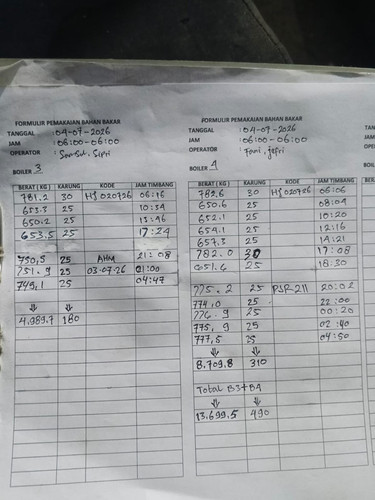 FORMULIR PEMAKAIAN BAHAN BAKAR
TANGGAL : 04-07-2026
JAM : 06:00-06:00
OPERATOR : Samsul, Sipri
BOILER 3
BERAT ( KG ) KARUNG KODE JAM TIMBANG
781.2 30 HS 020726 06:16
653.3 25 10:34
650.2 25 13:46
653.5 25 17:24
750,5 25 AHM 21:08
751.9 25 03-07-26 01:00
749,1 25 04:47
⇓ ⇓
4.989,7 180
FORMULIR PEMAKAIAN BAHAN BAKAR
TANGGAL : 04-07-2026
JAM : 06:00-06:00
OPERATOR : Fani, Jefri
BOILER 4
BERAT ( KG ) KARUNG KODE JAM TIMBANG
782.6 30 HS 020726 06:06
650.6 25 08:04
652.1 25 10:20
654.1 25 12:16
657.3 25 14:21
782.0 30 17:08
651.6 25 18.30
775.2 25 PSR-211 20:02
774,0 25 22:00
776.9 25 00:20
775,9 25 02:40
777,5 25 04:50
⇓ ⇓
8.709.8 310
Total B3+B4
⇓ ⇓
13.699,5 490